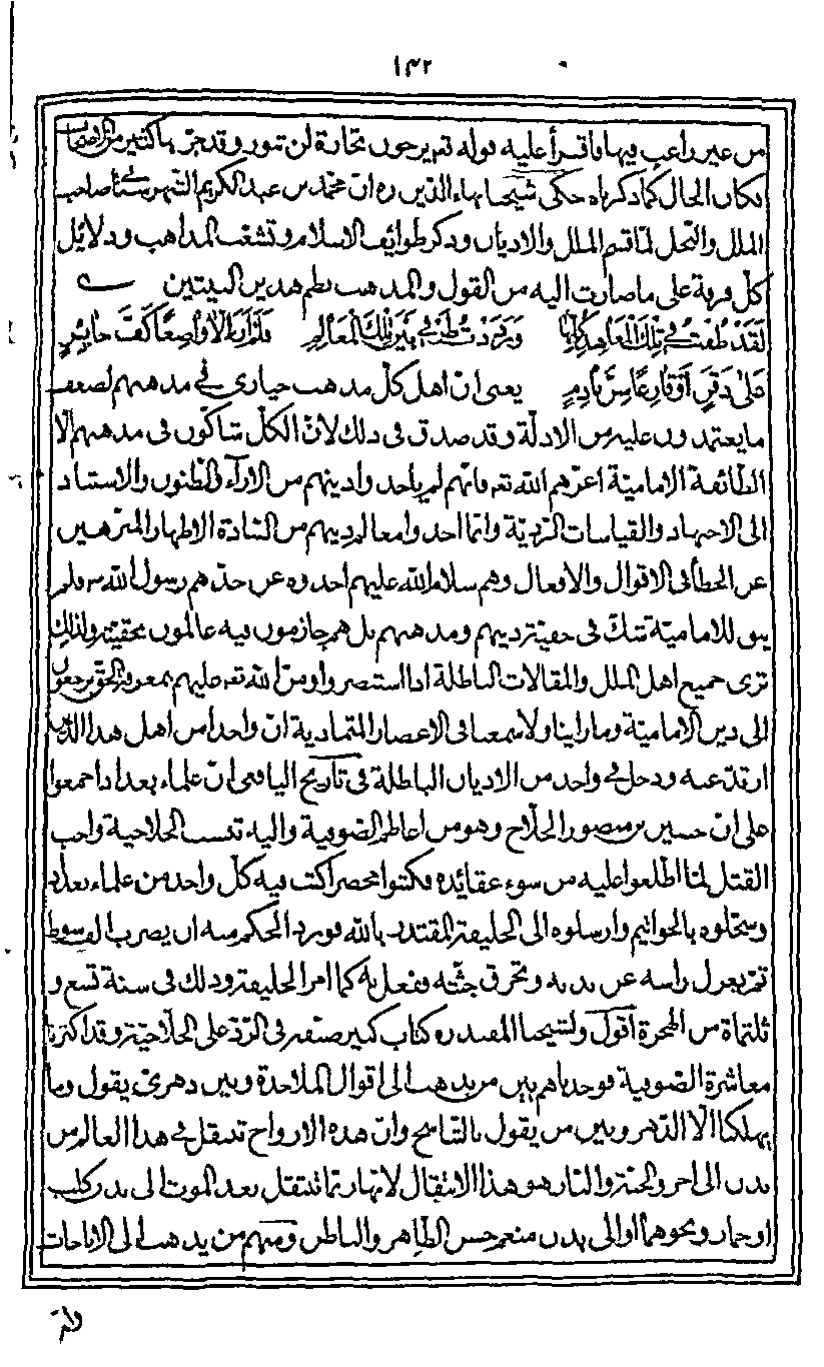 ١٤٢
من غير راغب فيها فاقرأ عليه قوله تعه يرجون تجارة لن تبور وقد جرّ بها كثير من
فكان الحال كما ذكرناه حكى شيخنا بهاء الدين ره ان محمد بن عبد الكريم الشهرستانى صاحب
الملل والنحل لمّا قسم الملل والاديان وذكر طوايف الاسلام وتشعّب المذاهب ودلائل
كلّ فرقة على ما صارت اليه من القول والمذهب نظم هذين البيتين
لَقَدْ طُفْتُ فى تِلْكَ المَعَاهِدِ كُلِّهَا وَرَدَّدْتُ طَرْفى بَيْنَ تِلْكَ المَعَالِمِ فَلَمْ اَرَ اِلّا وَاضِعًا كَفَّ حَائِرٍ
عَلى ذَقَنٍ اَوْ قَارِعًا سِنَّ نَادِمٍ يعنى انّ اهل كلّ مذهب حيارى فى مذهبهم لضعف
ما يعتمدون عليه من الادلّة وقد صدق فى ذلك لانّ الكلّ شاكّون فى مذهبهم الّا
الطائفة الاماميّة اعزّهم الله تعه فانّهم لم ياخذوا دينهم من الاراء والظنون والاستناد
الى الاجتهاد والقياسات الرديّة وانّما اخذوا معالم دينهم من السّادة الاطهار المنزّهين
عن الخطأ فى الاقوال والافعال وهم سلام الله عليهم اخذوه عن جدّهم رسول الله ص فلم
يبق للاماميّة شكّ فى حقيّة دينهم ومذهبهم بل هم جازمون فيه عالمون بحقيته ولذلك
ترى جميع اهل الملل والمقالات الباطلة اذا استبصروا ومنّ الله تعه عليهم بمعرفة الحقّ يرجعون
الى دين الاماميّة وما راينا ولا سمعنا فى الاعصار المتمادية انّ واحدا من اهل هذا الدين
ارتدّ عنه ودخل فى واحد من الاديان الباطلة فى تاريخ اليافعى انّ علماء بغداد اجمعوا
على انّ حسين بن منصور الحلّاج وهو من اعاظم الصّوفية واليه تنسب الحلاجية واجب
القتل لمّا اطلعوا عليه من سوء عقائده فكتبوا محضرا كتب فيه كلّ واحد من علماء بغداد
وسجّلوه بالخواتيم وارسلوه الى الخليفة المقتدر بالله فورد الحكم منه ان يضرب الف سوط
ثمّ يعزل راسه عن بدنه وتحرق جثّته ففعل به كما امر الخليفة وذلك فى سنة تسع و
ثلثمأة من الهجرة اقول ولشيخنا المفيد ره كتاب كبير صنّفه فى الرّد على الحلّاجيّة وقد اكثرنا
معاشرة الصّوفية فوجدناهم بين من يذهب الى اقوال الملاحدة وبين دهرىّ يقول وما
يهلكنا الّا الدّهر وبين من يقول بالتناسخ وانّ هذه الارواح تنتقل فى هذا العالم من
بدن الى اخر والجنّة والنار هو هذا الانتقال لانها ربّما تنتقل بعد الموت الى بدن كلب
او حمار ونحوهما او الى بدن منعم حسن الظّاهر والباطن ومنهم من يذهب الى الاباحات